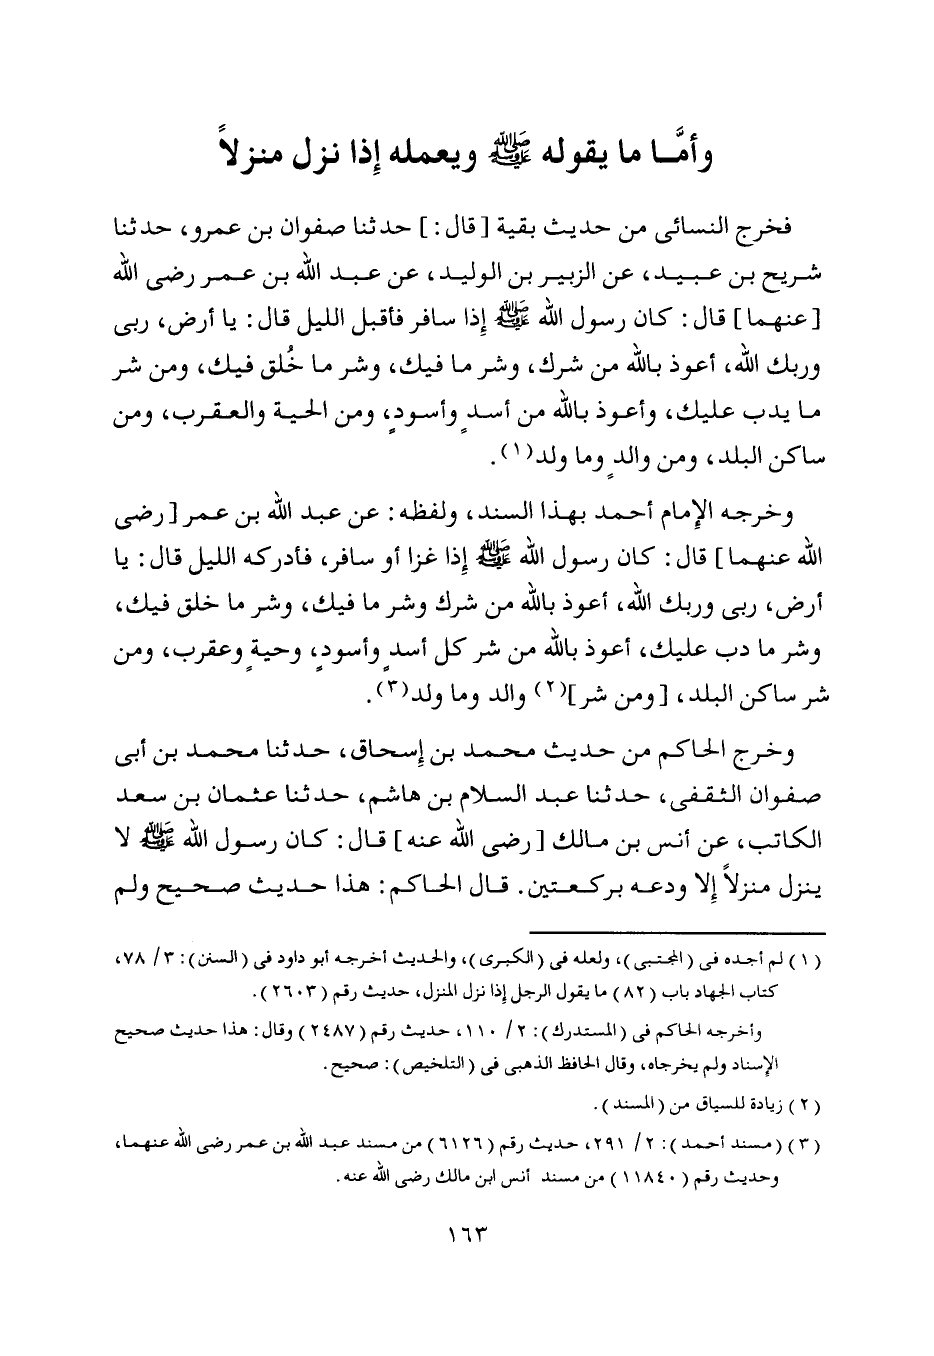 وأمَّا ما يقوله ﷺ ويعمله إذا نزل منزلاً
فخرج النسائى من حديث بقية [قال:] حدثنا صفوان بن عمرو، حدثنا
شريح بن عبيد، عن الزبير بن الوليد، عن عبد الله بن عمر رضى الله
[عنهما] قال: كان رسول الله ﷺ إذا سافر فأقبل الليل قال: يا أرض، ربى
وربك الله، أعوذ بالله من شرك، وشر ما فيك، وشر ما خُلق فيك، ومن شر
ما يدب عليك، وأعوذ بالله من أسدٍ وأسودٍ، ومن الحية والعقرب، ومن
ساكن البلد، ومن والدٍ وما ولد(١).
وخرجه الإمام أحمد بهذا السند، ولفظه: عن عبد الله بن عمر [رضى
الله عنهما] قال: كان رسول الله ﷺ إذا غزا أو سافر، فأدركه الليل قال: يا
أرض، ربى وربك الله، أعوذ بالله من شرك وشر ما فيك، وشر ما خلق فيك،
وشر ما دب عليك، أعوذ بالله من شر كل أسدٍ وأسودٍ، وحيةٍ وعقرب، ومن
شر ساكن البلد، [ومن شر](٢) والد وما ولد(٣).
وخرج الحاكم من حديث محمد بن إسحاق، حدثنا محمد بن أبى
صفوان الثقفى، حدثنا عبد السلام بن هاشم، حدثنا عثمان بن سعد
الكاتب، عن أنس بن مالك [رضى الله عنه] قال: كان رسول الله ﷺ لا
ينزل منزلاً إلا ودعه بركعتين. قال الحاكم: هذا حديث صحيح ولم
(١) لم أجده فى (المجتبى)، ولعله فى (الكبرى)، والحديث أخرجه أبو داود فى (السنن): ٣/ ٧٨،
كتاب الجهاد باب (٨٢) ما يقول الرجل إذا نزل المنزل، حديث رقم (٢٦٠٣).
وأخرجه الحاكم فى (المستدرك): ٢/ ١١٠، حديث رقم (٢٤٨٧) وقال: هذا حديث صحيح
الإسناد ولم يخرجاه، وقال الحافظ الذهبى فى (التلخيص): صحيح.
(٢) زيادة للسياق من (المسند).
(٣) (مسند أحمد): ٢/ ٢٩١، حديث رقم (٦١٢٦) من مسند عبد الله بن عمر رضى الله عنهما،
وحديث رقم (١١٨٤٠) من مسند أنس ابن مالك رضى الله عنه.
١٦٣